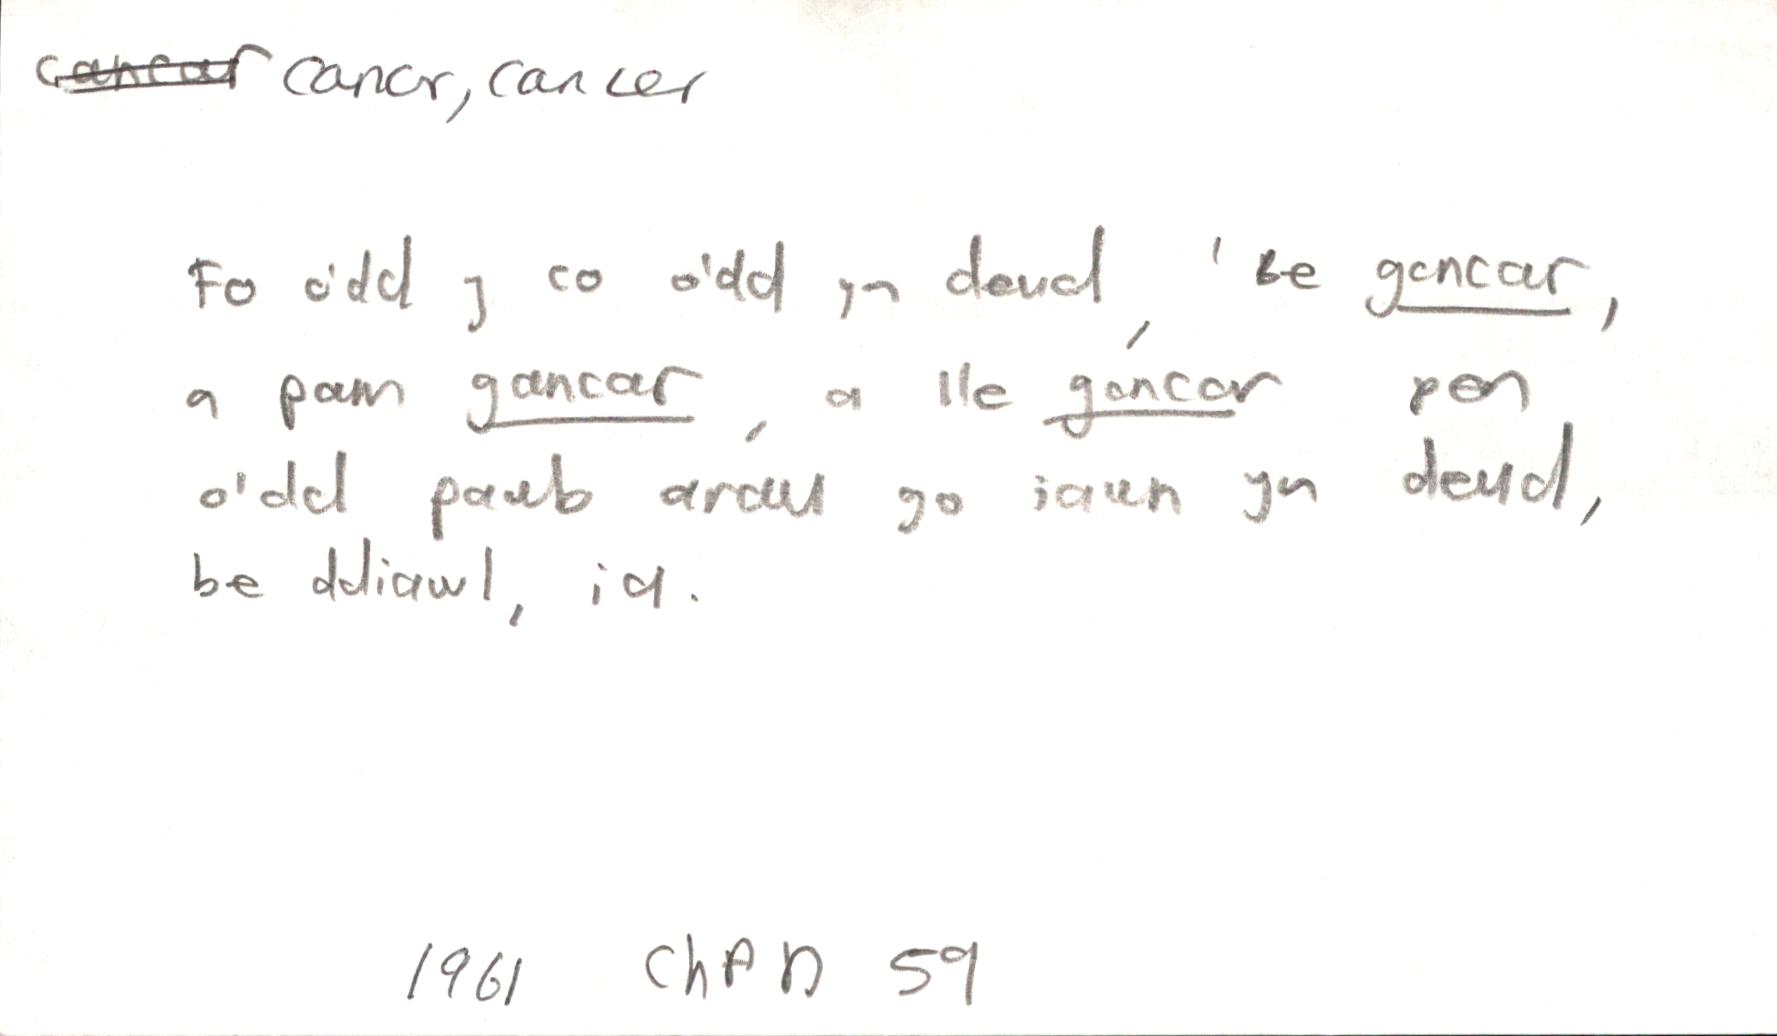 cancar cancr, cancer
Fo o'dd y co o'dd yn deud, 'be gancar,
a pam gancar, a lle gancar pen
o'dd pawb arall go iawn yn deud,
be ddiawl, ia.
1961 ChAD 59